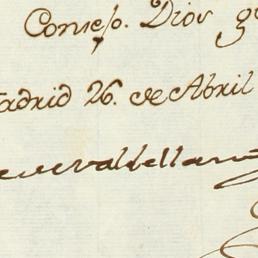 Consejo. Dios g
adrid 26. de Abril
de Valdellan